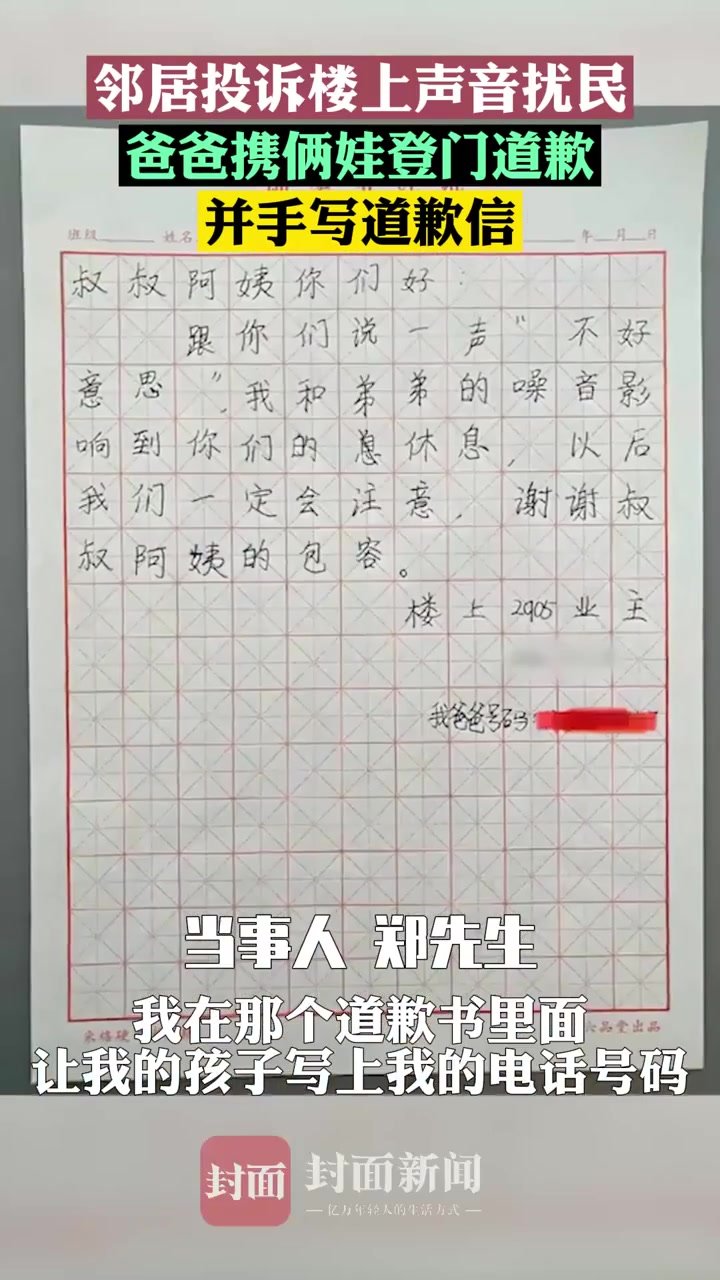 邻居投诉楼上声音扰民
爸爸携俩娃登门道歉
并手写道歉信
班级 姓名 年 月 日
叔叔阿姨你们好：
跟你们说一声“不好
意思”，我和弟弟的噪音影
响到你们的息休息，以后
我们一定会注意，谢谢叔
叔阿姨的包容。
楼上2905业主
我爸爸号码：
当事人 郑先生
品堂出品
我在那个道歉书里面
让我的孩子写上我的电话号码
封面
封面新闻
亿万年轻人的生活方式